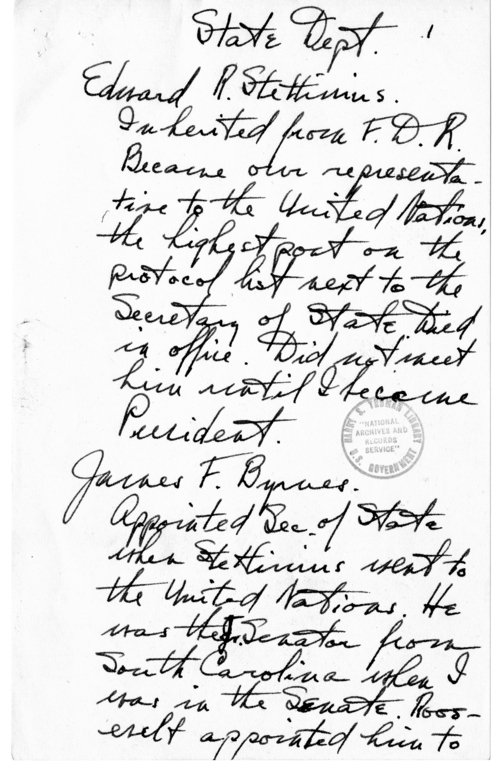 State Dept. 1
Edward R. Stettinius.
Inherited from F.D.R.
Became our representa-
tive to the United Nations,
the highest post on the
protocol list next to the
Secretary of State. Died
in office. Did not meet
him until I became
President.
HARRY S. TRUMAN LIBRARY
"NATIONAL
ARCHIVES AND
RECORDS
SERVICE"
U.S. GOVERNMENT
James F. Byrnes.
Appointed Sec. of State
when Stettinius went to
the United Nations. He
was the Senator from
South Carolina when I
was in the Senate. Roos-
evelt appointed him to